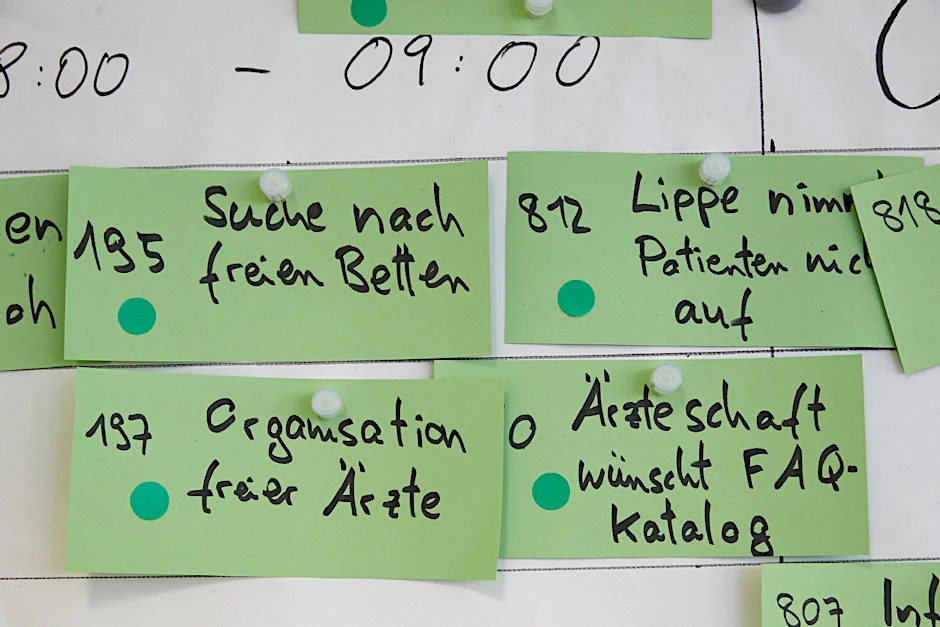 8:00 - 09:00
en
oh
195 Suche nach
freien Betten
812 Lippe
Patienten
auf
818
197 Organisation
freier Ärzte
0 Ärzteschaft
wünscht FAQ-
Katalog
807 Inf